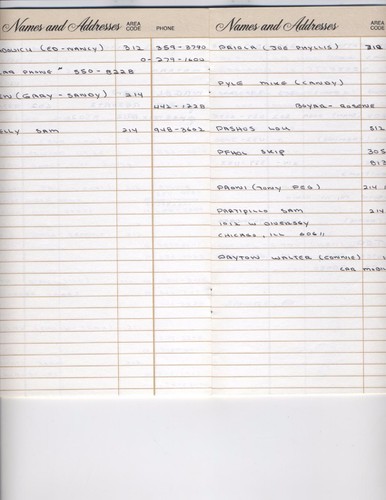 Names and Addresses AREA CODE PHONE
(ED-NANCY) 312 359-3790
0-279-1600
CAR PHONE " 550-8228
(GARY-SANDY) 214
442-1228
SAM 214 948-3602
Names and Addresses AREA CODE
PRIOLA (JOE PHYLLIS) 312
PYLE MIKE (CANDY)
BOYAR-
PASHOS LOU 312
PFHOL SKIP 305
813
PRONI (TONY PEG) 214
PARTIPILLO SAM 214
1012 W DIVERSEY
CHICAGO, ILL 60611
PAYTON WALTER (CONNIE)
CAR MOBIL